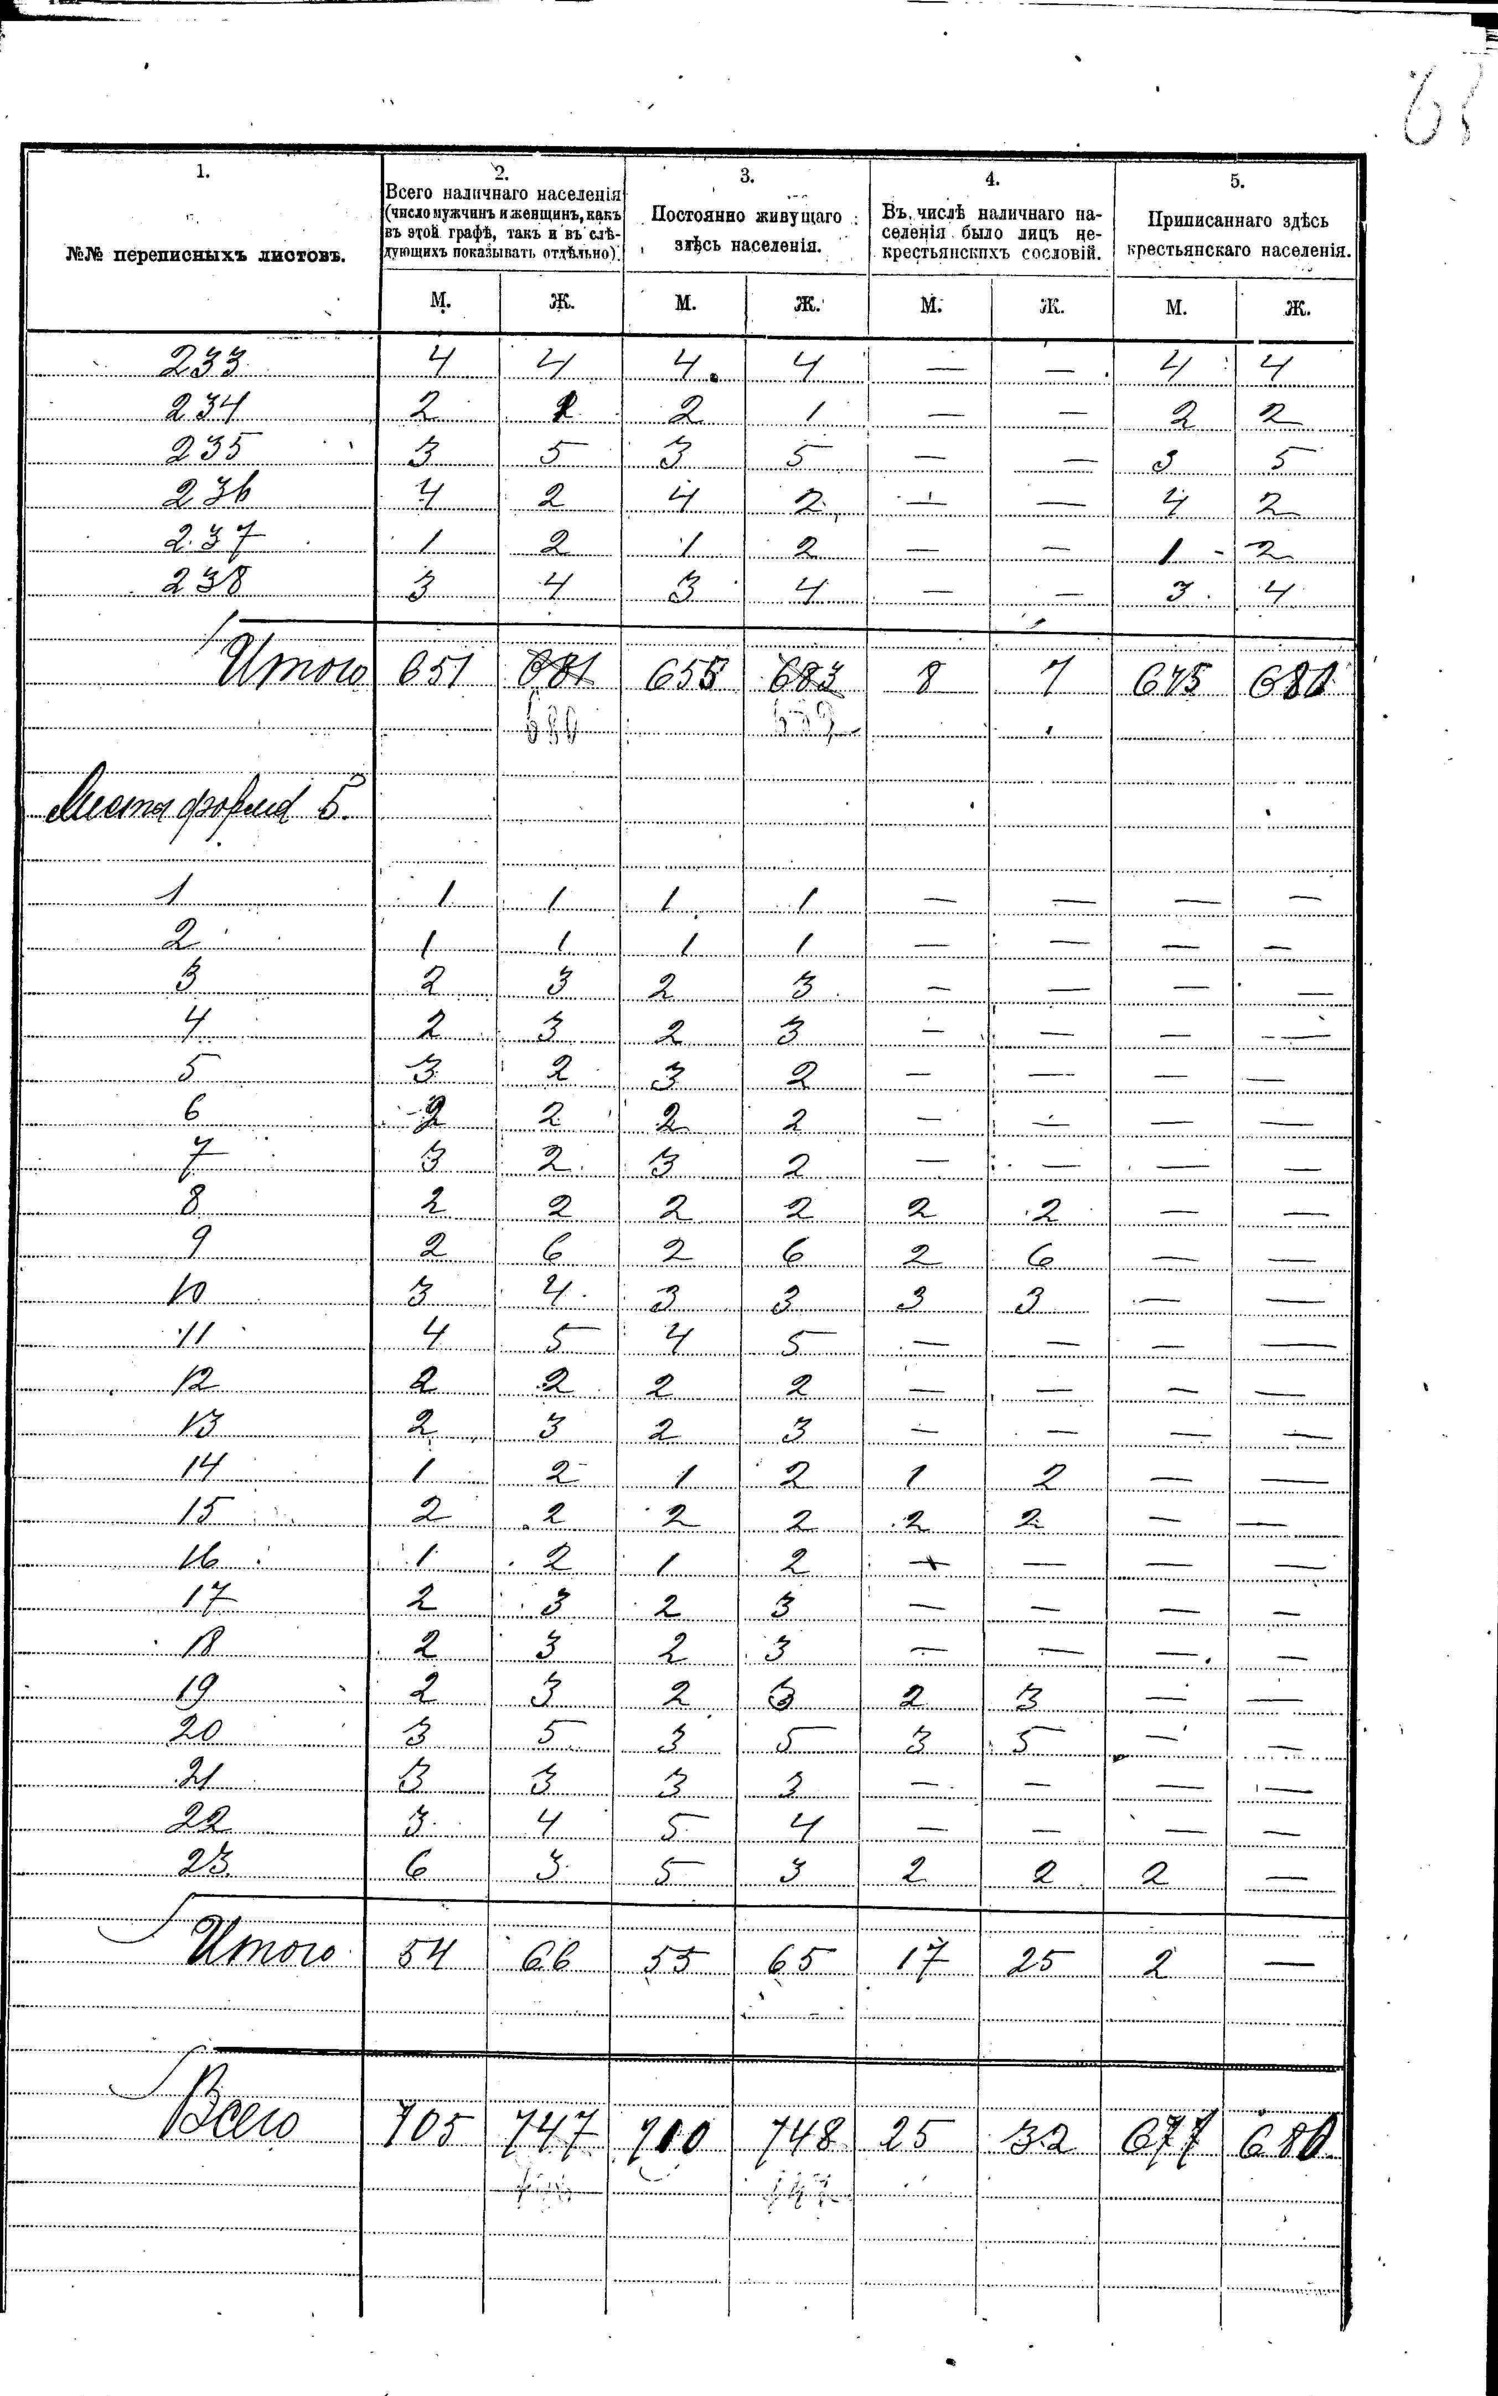 1. 2. 3. 4. 5.
№№ переписныхъ листовъ.
Всего наличнаго населенія
(число мужчинъ и женщинъ, какъ
въ этой графѣ, такъ и въ слѣ-
дующихъ показывать отдѣльно).
Постоянно живущаго
здѣсь населенія.
Въ числѣ наличнаго на-
селенія было лицъ не-
крестьянскихъ сословій.
Приписаннаго здѣсь
крестьянскаго населенія.
М. Ж. М. Ж. М. Ж. М. Ж.
233 4 4 4 4 — — 4 4
234 2 1 2 1 — — 2 2
235 3 5 3 5 — — 3 5
236 4 2 4 2 — — 4 2
237 1 2 1 2 — — 1 2
238 3 4 3 4 — — 3 4
Итого 651 681 655 683 8 7 675 680
Листы формы Б.
1 1 1 1 1 — — — —
2 1 1 1 1 — — — —
3 2 3 2 3 — — — —
4 2 3 2 3 — — — —
5 3 2 3 2 — — — —
6 2 2 2 2 — — — —
7 3 2 3 2 — — — —
8 2 2 2 2 2 2 — —
9 2 6 2 6 2 6 — —
10 3 4 3 3 3 3 — —
11 4 5 4 5 — — — —
12 2 2 2 2 — — — —
13 2 3 2 3 — — — —
14 1 2 1 2 1 2 — —
15 2 2 2 2 2 2 — —
16 1 2 1 2 — — — —
17 2 3 2 3 — — — —
18 2 3 2 3 — — — —
19 2 3 2 3 2 3 — —
20 3 5 3 5 3 5 — —
21 3 3 3 3 — — — —
22 3 4 5 4 — — — —
23 6 3 5 3 2 2 2 —
Итого 54 66 55 65 17 25 2 —
Всего 705 747 710 748 25 32 677 680